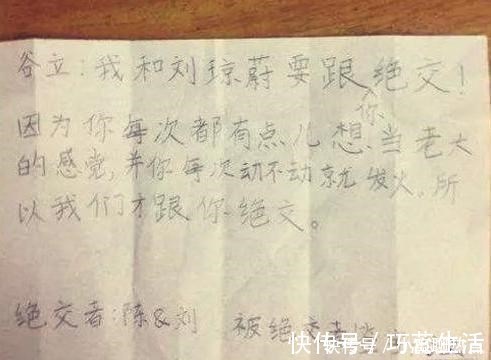 谷立：我和刘琼蔚要跟你绝交！
因为你每次都有点儿想当老大
的感觉，并你每次动不动就发火。所
以我们才跟你绝交。
绝交者：陈&刘 被绝交者
快传号 / 巧芸生活